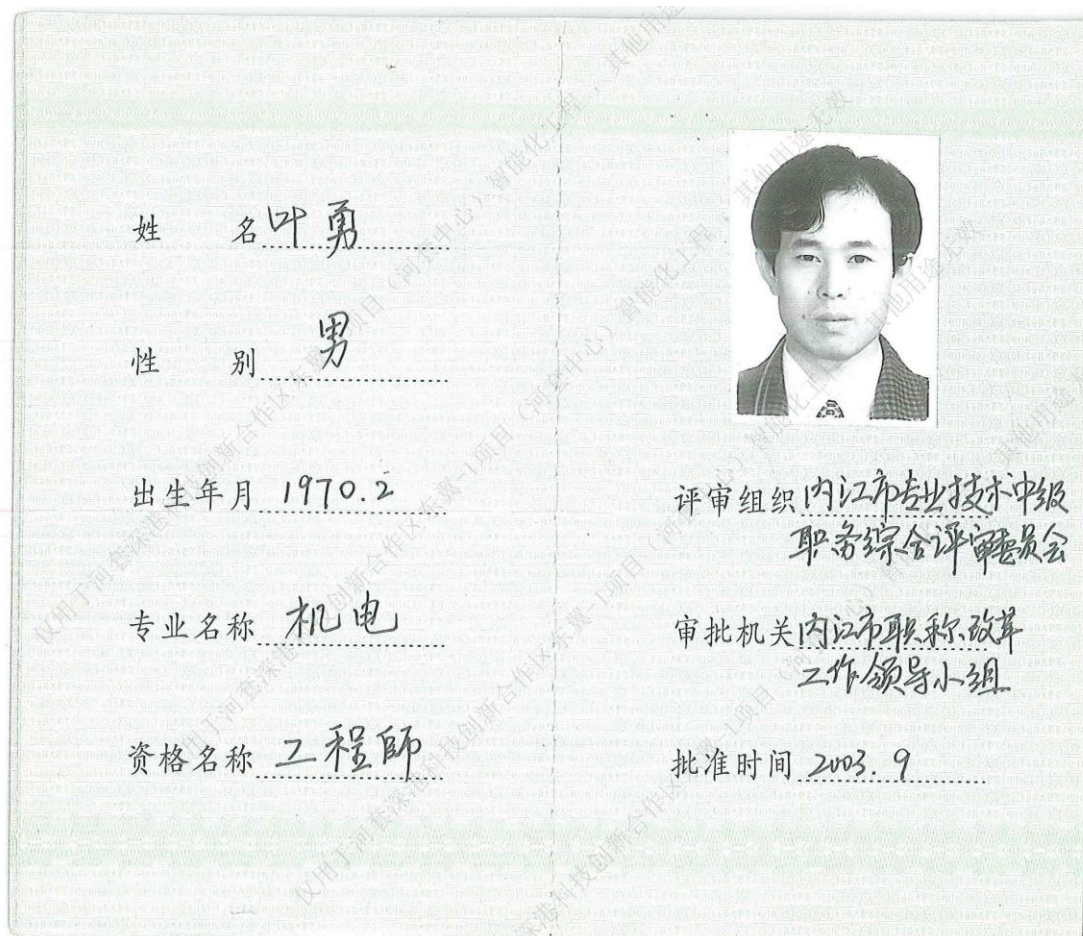 姓 名 叶勇
性 别 男
出生年月 1970.2
专业名称 机电
资格名称 工程師
评审组织 内江市专业技术中级
职务综合评审委员会
审批机关 内江市职称改革
工作领导小组
批准时间 2003.9
仅用于河套深港科技创新合作区东翼-1项目（河套中心）智能化工程，其他用途无效